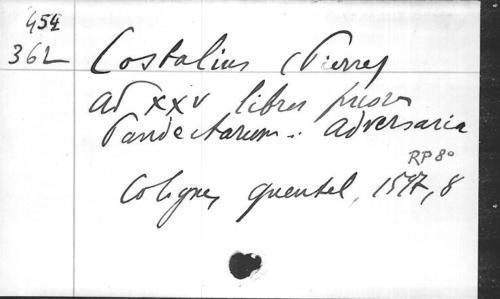 454
362
Costalius (Pierre)
ad XXV libros priores
Pandectarum. adversaria
RP 8°
Cologne, Quentel, 1597, 8